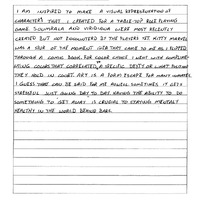 I AM INSPIRED TO MAKE A VISUAL REPRESENTATION OF
CHARACTERS THAT I CREATED FOR A TABLE TOP ROLE PLAYING
GAME. AND WERE MOST RECENTLY
CREATED BUT NOT ENCOUNTERED BY THE PLAYERS YET. KITTY MARVEL
WAS A SPUR OF THE MOMENT IDEA THAT CAME TO ME AS I FLIPPED
THROUGH A COMIC BOOK. FOR COLOR CHOICE I WENT WITH COMPLIME-
NTING COLORS THAT REPRESENTED A SPECIFIC DEITY OR WHAT POSITION
THEY HOLD IN COURT. ART IS A FORM ESCAPE FOR MANY
I GUESS THAT CAN BE SAID FOR ME ASWELL. SOMETIMES IT GETS
STRESSFUL JUST GOING DAY TO DAY. HAVING THE ABILITY TO DO
SOMETHING TO GET AWAY IS CRUCIAL TO STAYING MENTALLY
HEALTHY IN THE WORLD BEHIND BARS.